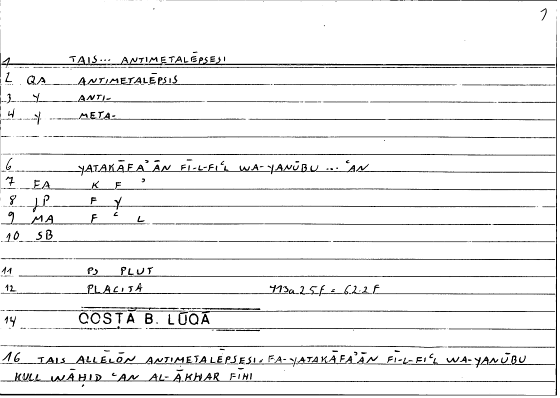 1
1 TAIS... ANTIMETALĒPSESI
2 QA ANTIMETALĒPSIS
3 Y ANTI-
4 Y META-
6 YATAKĀFAʾĀN FĪ-L-FIʿL WA-YANŪBU ... ʿAN
7 EA K F ʾ
8 JP F Y
9 MA F ʿ L
10 SB
11 PS PLUT
12 PLACITA 413a25f = 622F
14 QOSṬĀ B. LŪQĀ
16 TAIS ALLĒLŌN ANTIMETALĒPSESI. FA-YATAKĀFAʾĀN FĪ-L-FIʿL WA-YANŪBU
KULL WĀḤID ʿAN AL-ĀKHAR FĪHI